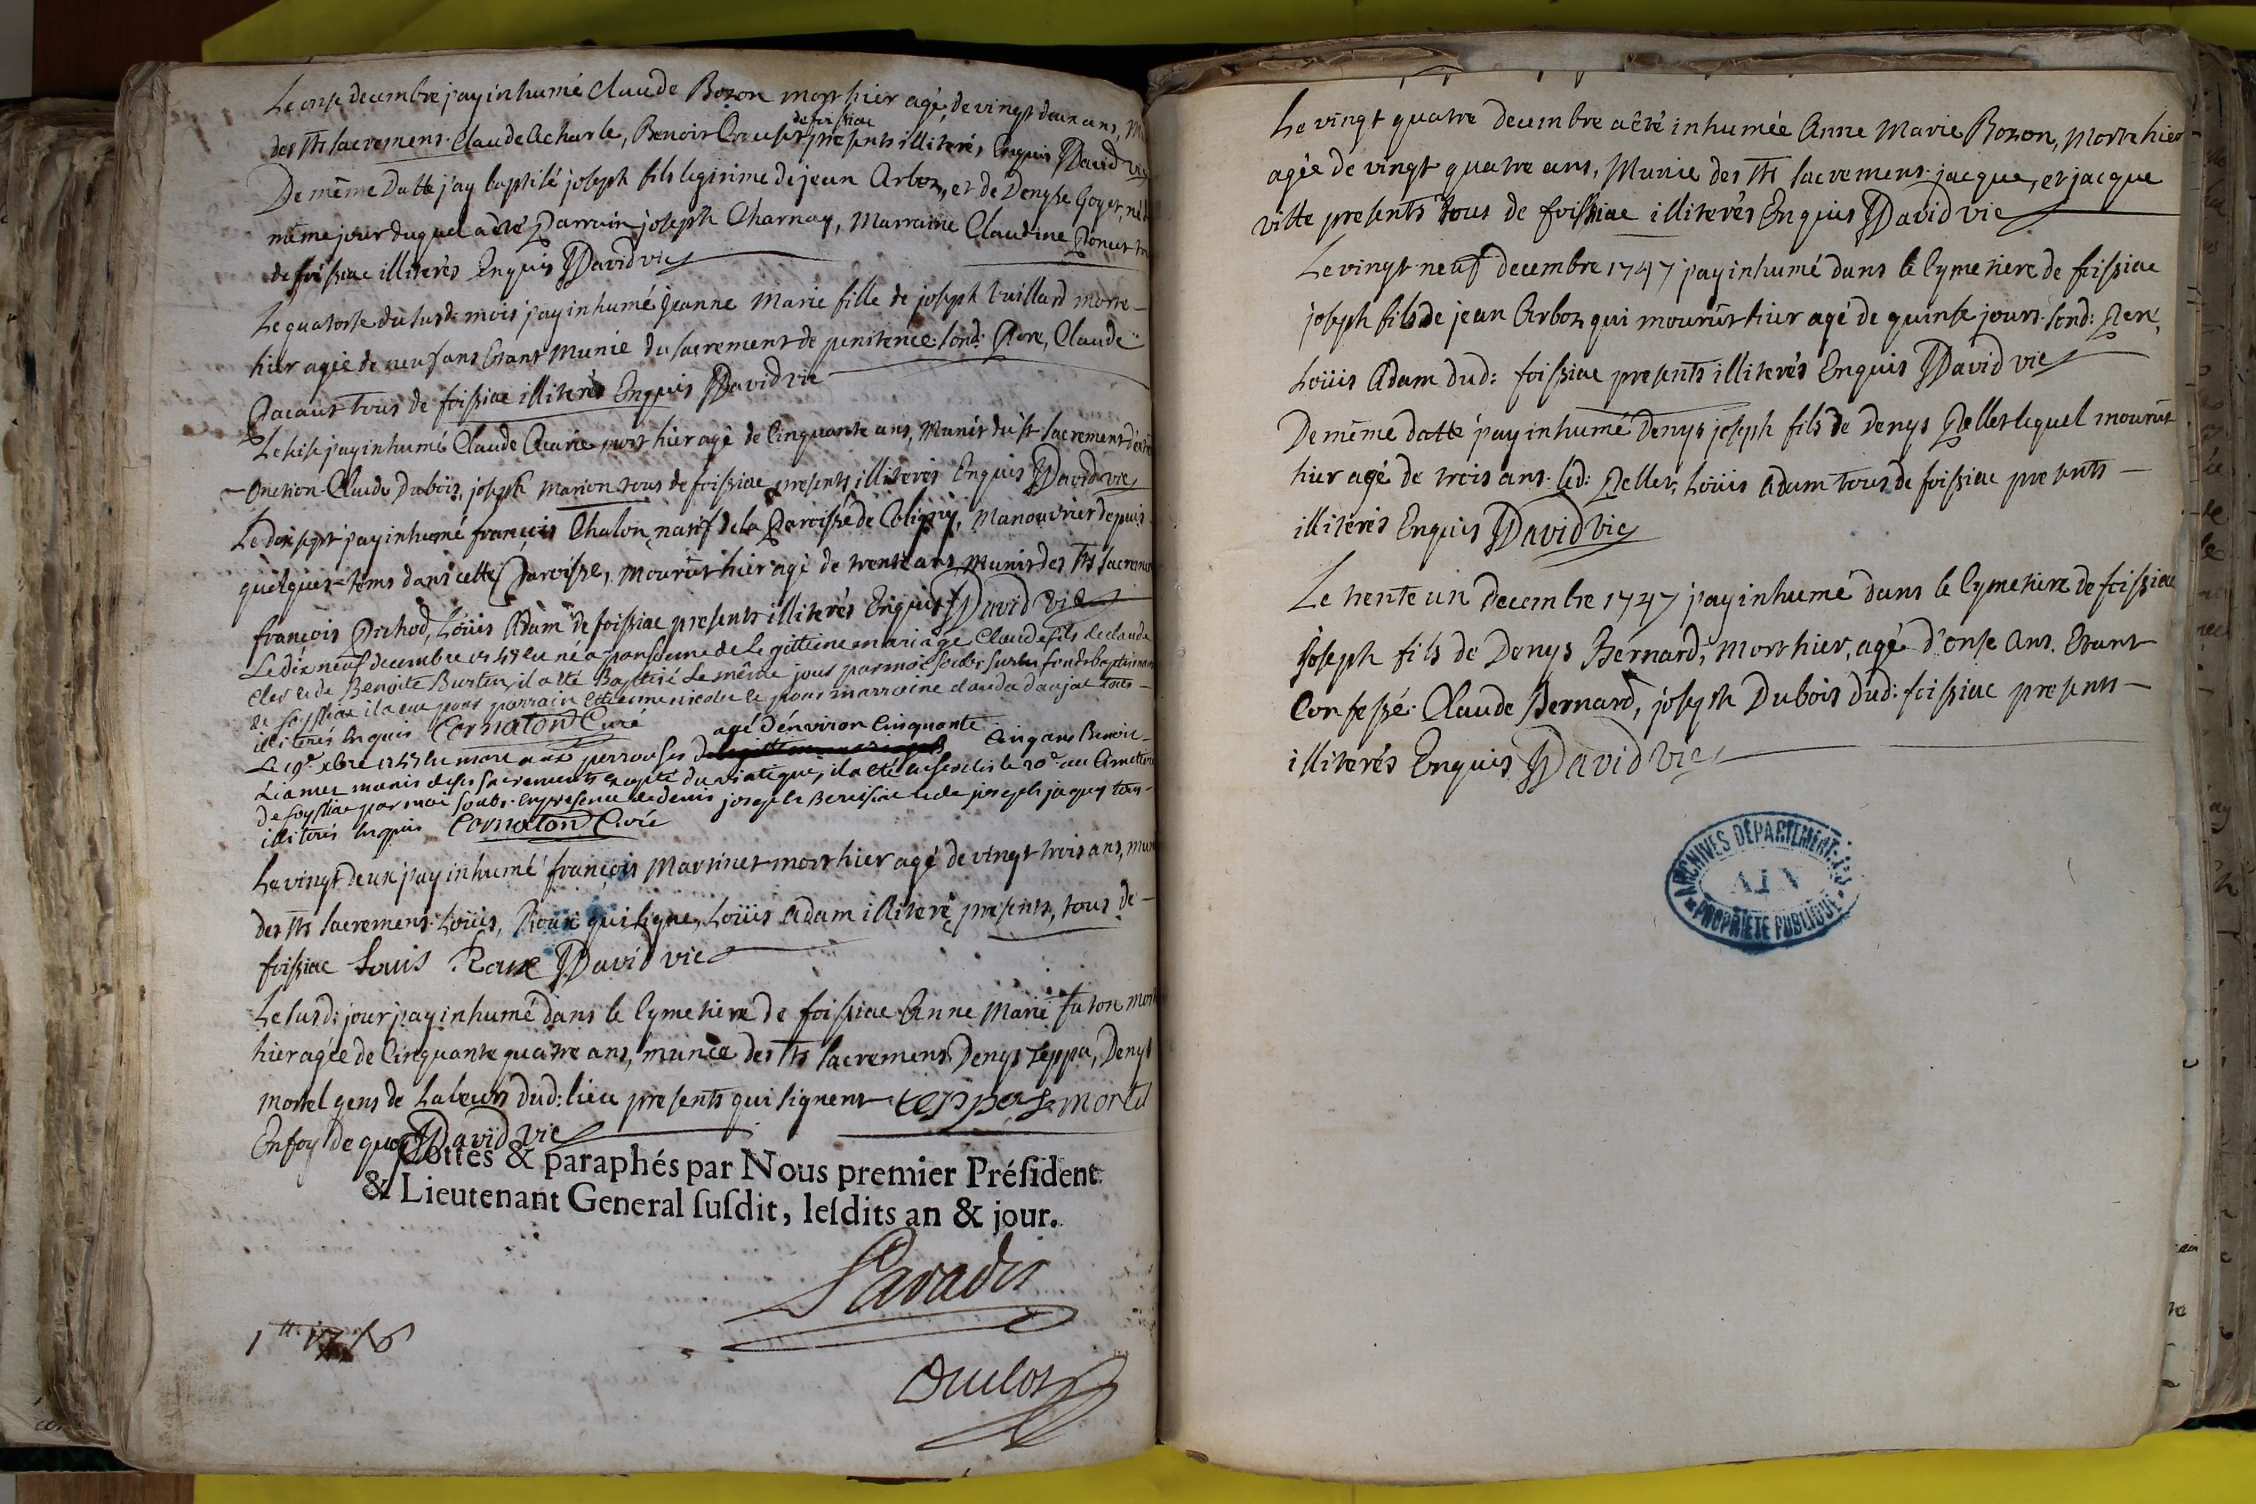 Le onse decembre j'ay inhumé Claude Bozon mort hier agé de vingt deux ans,
des Sts sacremens. Claude Acharle, Benoit de foissiac presents illiterés Enquis David vic
De même Datte j'ay baptisé joseph fils legitime de jean Arboz, et de Denyse Goyet, né
même jour duquel a été Parrain joseph Charnay, Marraine Claudine
de foissiac illiterés Enquis David vic
Le quatorse du susd: mois j'ay inhumé jeanne Marie fille de joseph Vuillard morte
hier agée de neuf ans Etant Munie du sacrement de penitence. sond: Pere, Claude
Pacaut tous de foissiac illiterés Enquis David vic
Le seise j'ay inhumé Claude mort hier agé de Cinquante ans, Munit du st sacrement d'extre
onction. Claude Dubois, joseph Marion tous de foissiac presents illiterés Enquis David vic
Le dix sept j'ay inhumé françois Chalon, natif de la Paroisse de Coligny, Manouvrier depuis
quelques-tems dans cette Paroisse, mourut hier agé de trente ans Munit des Sts sacremens
françois Prihod, Loüis Adam de foissiac presents illiterés Enquis David vic
Le dix neuf decembre 1747 est né a de Legittime mariage Claude fils de claude
et de Benoite Burtin, il a été Baptisé Le même jour par moi soubs: sur les fonds Baptismaux
de foyssiac il a eu pour parrain et pour marraine clauda daujat tous
illiterés Enquis Cornaton Curé
agé D'environ Cinquante
Le 19e xbre 1747 est mort aux perrouses Cinq ans Benoit
munis de ses sacrements excepté du viatique, il a été enseveli le 20e au Cimettiere
de foyssiac par moi soubs: en presence de denis joseph et de joseph jaquet tous
illiterés Enquis Cornaton Curé
Le vingt deux j'ay inhumé françois Martinet mort hier agé de vingt trois ans, muni
des Sts sacremens. Loüis Roux qui signe, Loüis Adam illiteré presents, tous de
foissiac Louis Roux David vic
Le susd: jour j'ay inhumé dans le Cymetiere de foissiac Anne Marie faton mort
hier agée de Cinquante quatre ans, munie des Sts sacremens. Denys Teppa, Denys
mortel gens de Labeurs dud: lieu presents qui signent teppa mortel
En foy de quoy David vic
Cottés & paraphés par Nous premier Président
& Lieutenant General susdit, lesdits an & jour.
Duclos
Le vingt quatre decembre a été inhumée Anne Marie Bozon, Morte hier
agée de vingt quatre ans, Munie des Sts sacremens. jacque, et jacque
vitte presents tous de foissiac illiterés Enquis David vic
Le vingt-neuf decembre 1747 j'ay inhumé dans le Cymetiere de foissiac
joseph fils de jean Arboz qui mourut hier agé de quinse jours. sond: Pere,
Loüis Adam dud: foissiac presents illiterés Enquis David vic
De même datte j'ay inhumé Denys joseph fils de Denys Pellet lequel mourut
hier agé de trois ans. led: Pellet, Loüis Adam tous de foissiac presents
illiterés Enquis David vic
Le trente un decembre 1747 j'ay inhumé dans le Cymetiere de foissiac
joseph fils de Denys Bernard, Mort hier, agé d'onse ans. Etant
Confessé. Claude Bernard, joseph Dubois dud: foissiac presents
illiterés Enquis David vic
ARCHIVES DÉPARTEMENT.LES
AIN
PROPRIÉTÉ PUBLIQUE